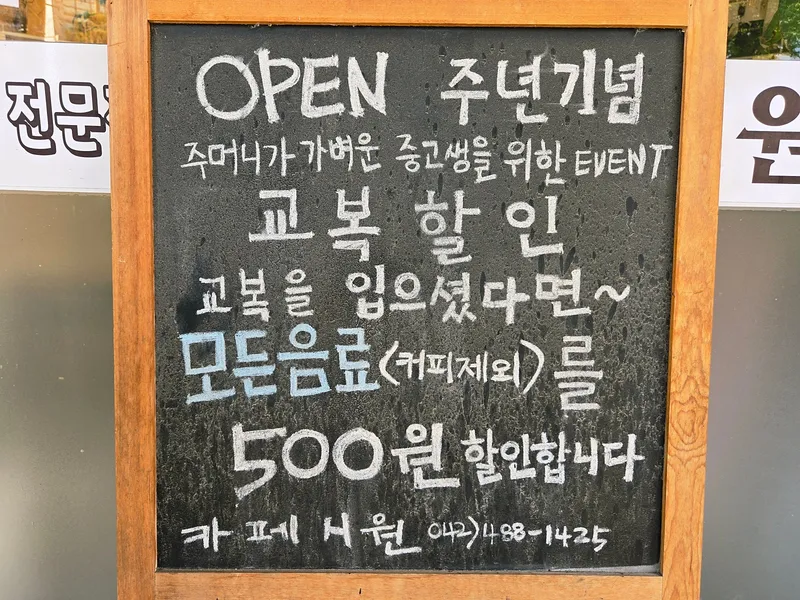 OPEN 주년기념
주머니가 가벼운 중고생을 위한 EVENT
교복 할인
교복을 입으셨다면~
모든음료(커피제외)를
500원 할인합니다
카페시원 042)488-1425
전문
원